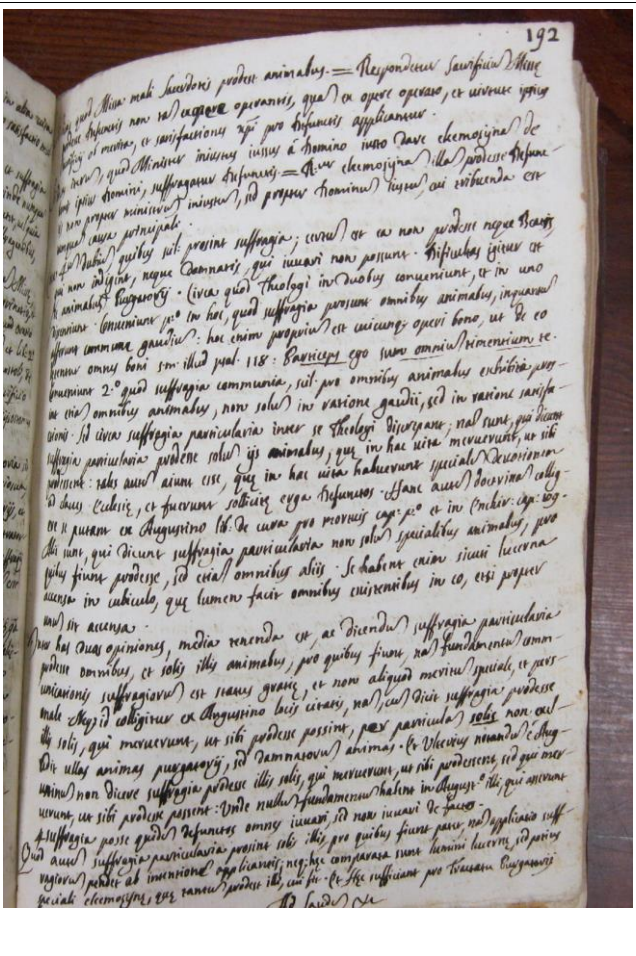 192
quod Missa mali Sacerdotis prodest animabus. = Respondetur Sacrificiū Missę
prodesse defunctis non tā ex opere operantis, quā ex opere operato, et virtute ipsius
et merita, et satisfactiones xp̄i pro defunctis applicantur.
quod Minister iniustus iussus á domino iusto dare elemosynā de
ipsius domini, suffragatur defunctis. = elemosynā illā prodesse defunc-
non propter ministrū iniustū, sed propter dominū iustū, cui tribuenda est
causa principali.
dubiū quibus sint prosint suffragia; certū est ea non prodesse neque Beatis,
qui non indigent, neque damnatis, qui iuvari non possunt. difficultas igitur est
de animabus Purgatorij. Circa quod Theologi in duobus conveniunt, et in uno
differunt. Conveniunt pº in hoc, quod suffragia prosunt omnibus animabus, inquantū
afferunt commune gaudiū: hoc enim propriū est cuicunq; operi bono, ut de eo
omnes boni s.m illud psal. 118: Particeps ego sum omniū timentium te.
Conveniunt 2.º quod suffragia communia, scil. pro omnibus animabus exhibita pro-
sint etiā omnibus animabus, non solū in ratione gaudii, sed in ratione satisfa-
ctionis. Sed circa suffragia particularia inter se Theologi discrepant; nā sunt, qui dicunt
suffragia particularia prodesse solū ijs animabus, quę in hac vita meruerunt, ut sibi
prodessent: tales autē aiunt esse, quę in hac vita habuerunt specialē devotionem
ad claves Ecclesię, et fuerunt sollicitę erga defunctos. Hanc autē doctrinā collig-
ere se putant ex Augustino lib: de cura pro mortuis cap: pº et in Enchir: cap:
Alii sunt, qui dicunt suffragia particularia non solū specialibus animabus, pro
quibus fiunt prodesse, sed etiā omnibus aliis. Se habent enim sicuti lucerna
accensa in cubiculo, quę lumen facit omnibus existentibus in eo, etsi propter
unū sit accensa.
Inter has duas opiniones, media tenenda est, ac dicendū suffragia particularia
prodesse omnibus, et solis illis animabus, pro quibus fiunt, nā fundamentū comm-
unicationis suffragiorū est status gratię, et non aliquod meritū speciale, et pers-
onale. Neq; id colligitur ex Augustino locis citatis, nā, cū dicit suffragia prodesse
illis solis, qui meruerunt, ut sibi prodesse possint, per particulā solis non exl-
dit ullas animas purgatorij, sed damnatorū animas. Et Ulterius notandū é Aug-
ustinū non dicere suffragia prodesse illis solis, qui meruerunt, ut sibi prodessent, sed qui mer-
uerunt, ut sibi prodesse possent: Unde nullū fundamentū habent in August.º illi, qui asserunt
suffragia posse quidē defunctos omnes iuvari, sed non iuvari de facto.
Quod autē suffragia particularia prosint solis illis, pro quibus fiunt patet, nā applicatio suff-
ragiorū pendet ab intentione applicantis; neq; hęc comparata sunt lumini lucernę, sed potius
speciali elemosynę, quę tantū prodest illi, cui fit. Et Hęc sufficiant pro Tractatu Purgatorij
Ad laudē